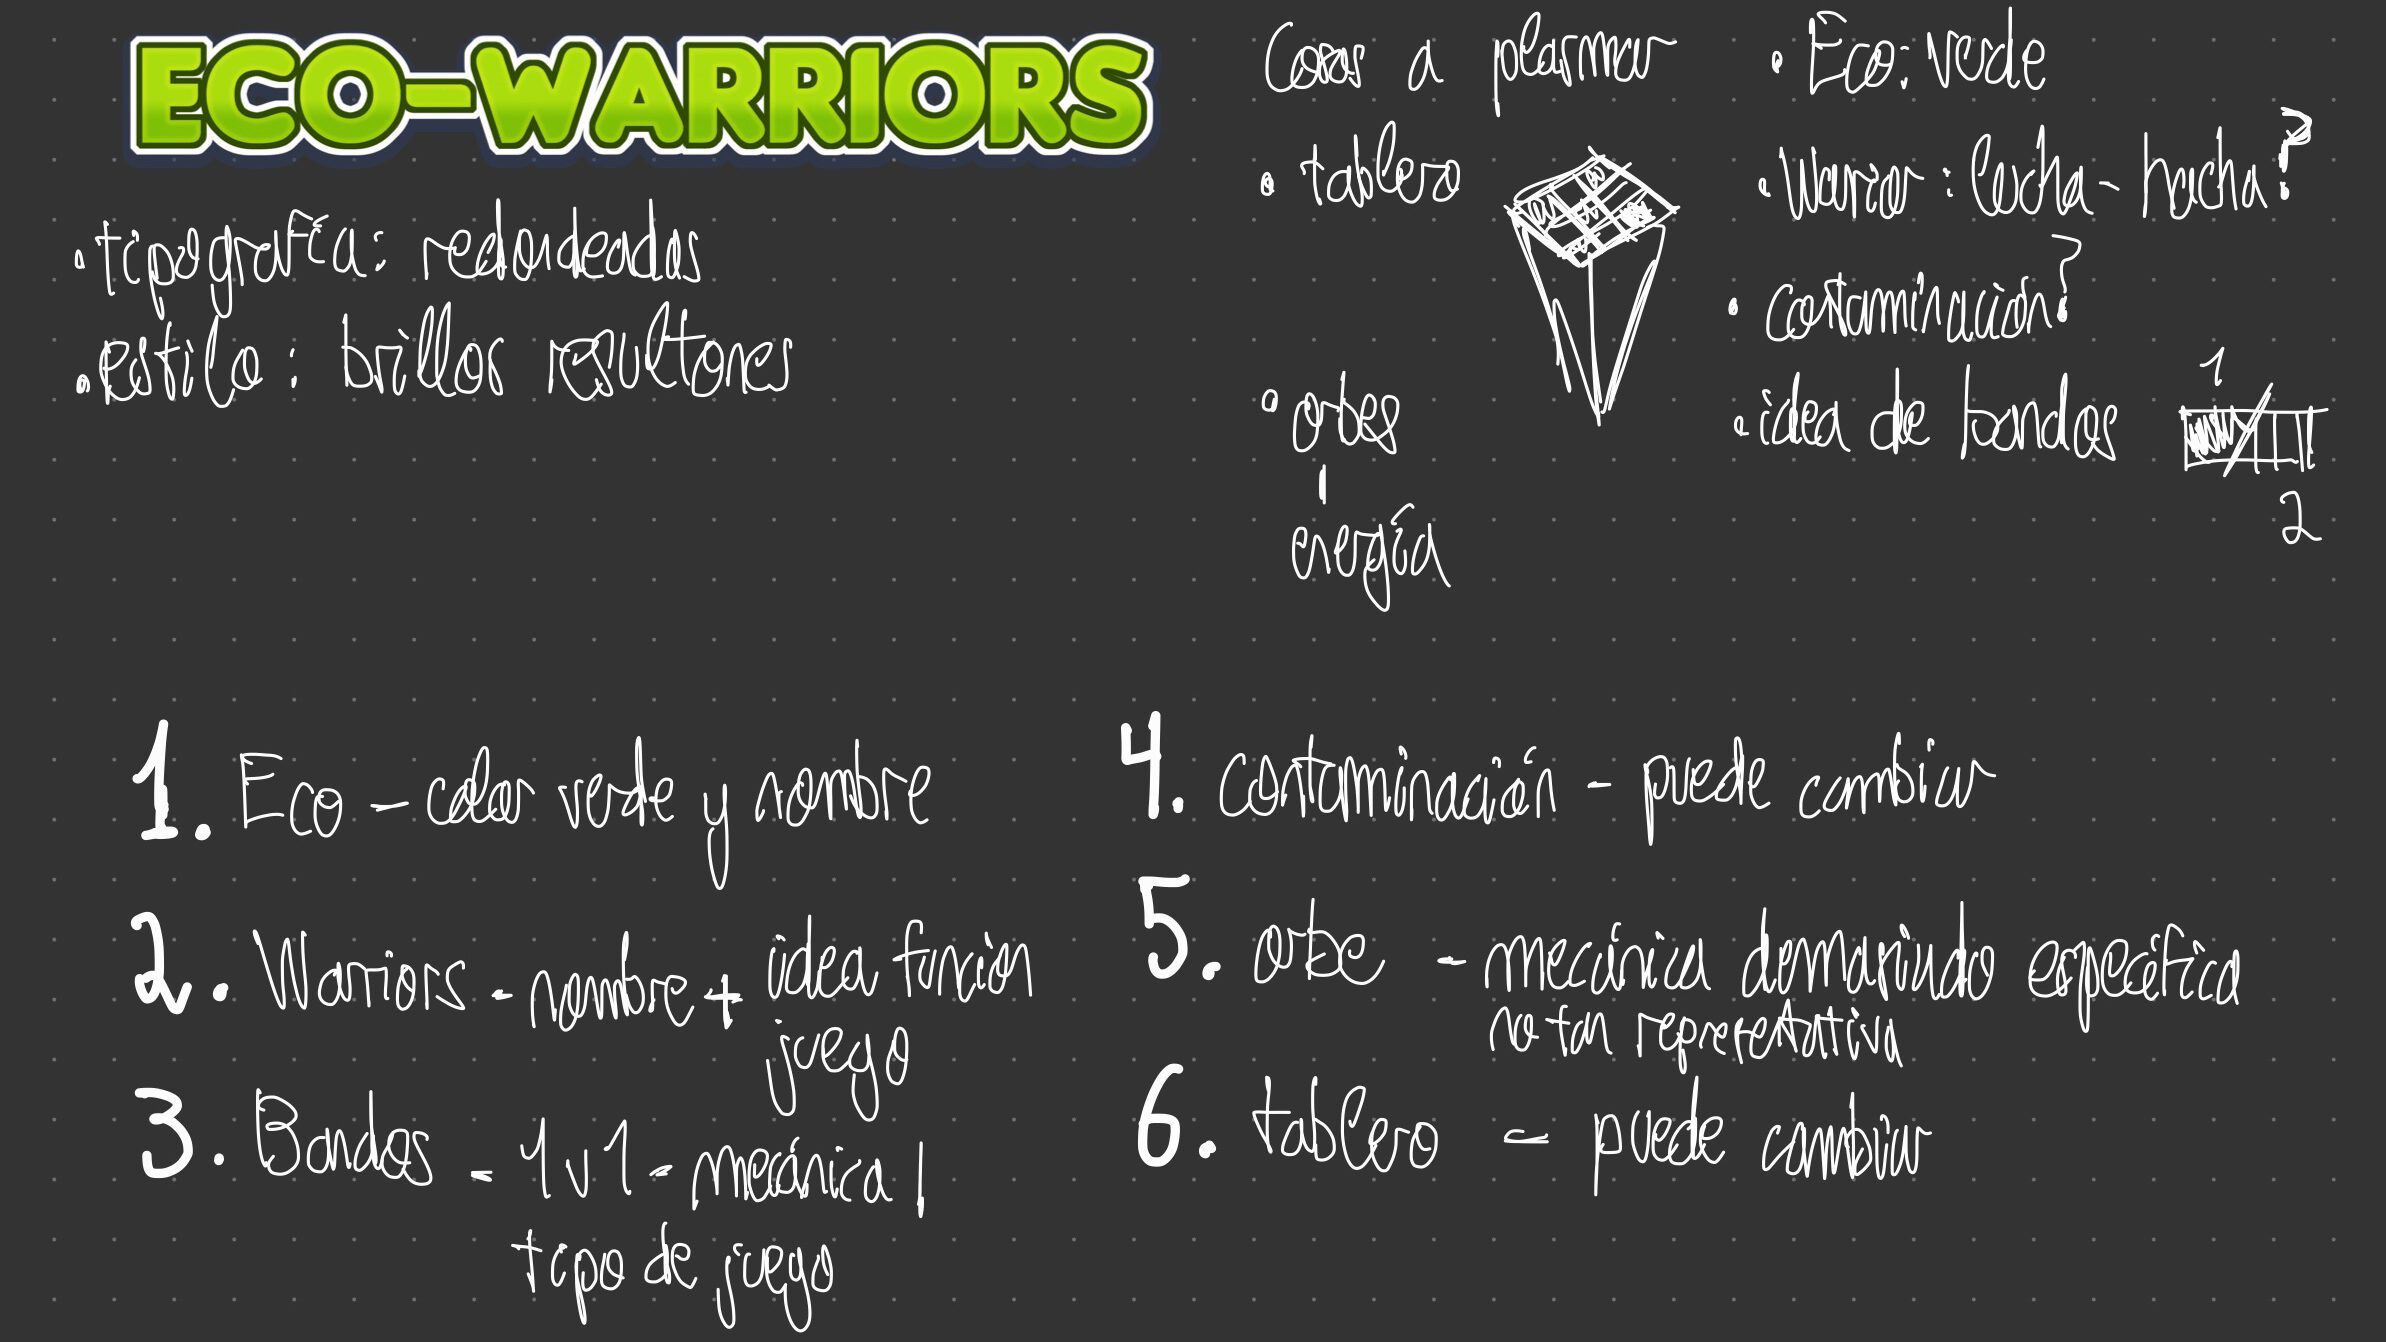 ECO-WARRIORS
• tipografía: redondeadas
• estilo: brillos resultones
Cosas a plasmar
• tablero
• orbes
energía
• Eco: verde
• Warrior: lucha - hacha?
• contaminación?
• idea de bandos
1
2
1. Eco - color verde y nombre
2. Warriors - nombre + idea función
juego
3. Bandos - 1v1 - mecánica /
tipo de juego
4. contaminación - puede cambiar
5. orbe - mecánica demasiado específica
no tan representativa
6. tablero - puede cambiar